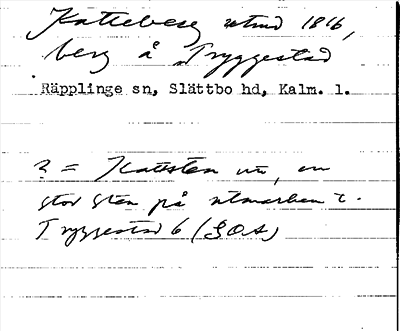 Katteberg utmd 1816,
berg å Tryggestad
Räpplinge sn, Slättbo hd, Kalm. l.
? = Kattsten nu, en
stor sten på utmarken t.
Tryggestad 6 (SOA)